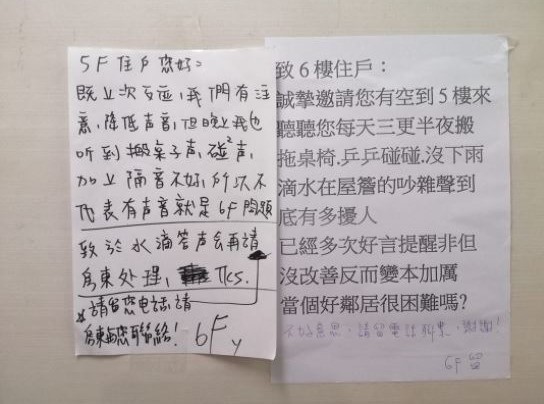 5F住戶您好：
既上次反應，我們有注
意，降低声音，但晚上我也
听到搬桌子声，碰²声，
加上隔音不好，所以不
代表有声音就是6F問題
致於水滴答声会再請
房東处理，Tks.
*請留您电話，請
房東與您聯絡！
6F
致6樓住戶：
誠摯邀請您有空到5樓來
聽聽您每天三更半夜搬
拖桌椅.乒乒碰碰.沒下雨
滴水在屋簷的吵雜聲到
底有多擾人
已經多次好言提醒非但
沒改善反而變本加厲
當個好鄰居很困難嗎?
不好意思，請留電話 謝謝！
6F 留